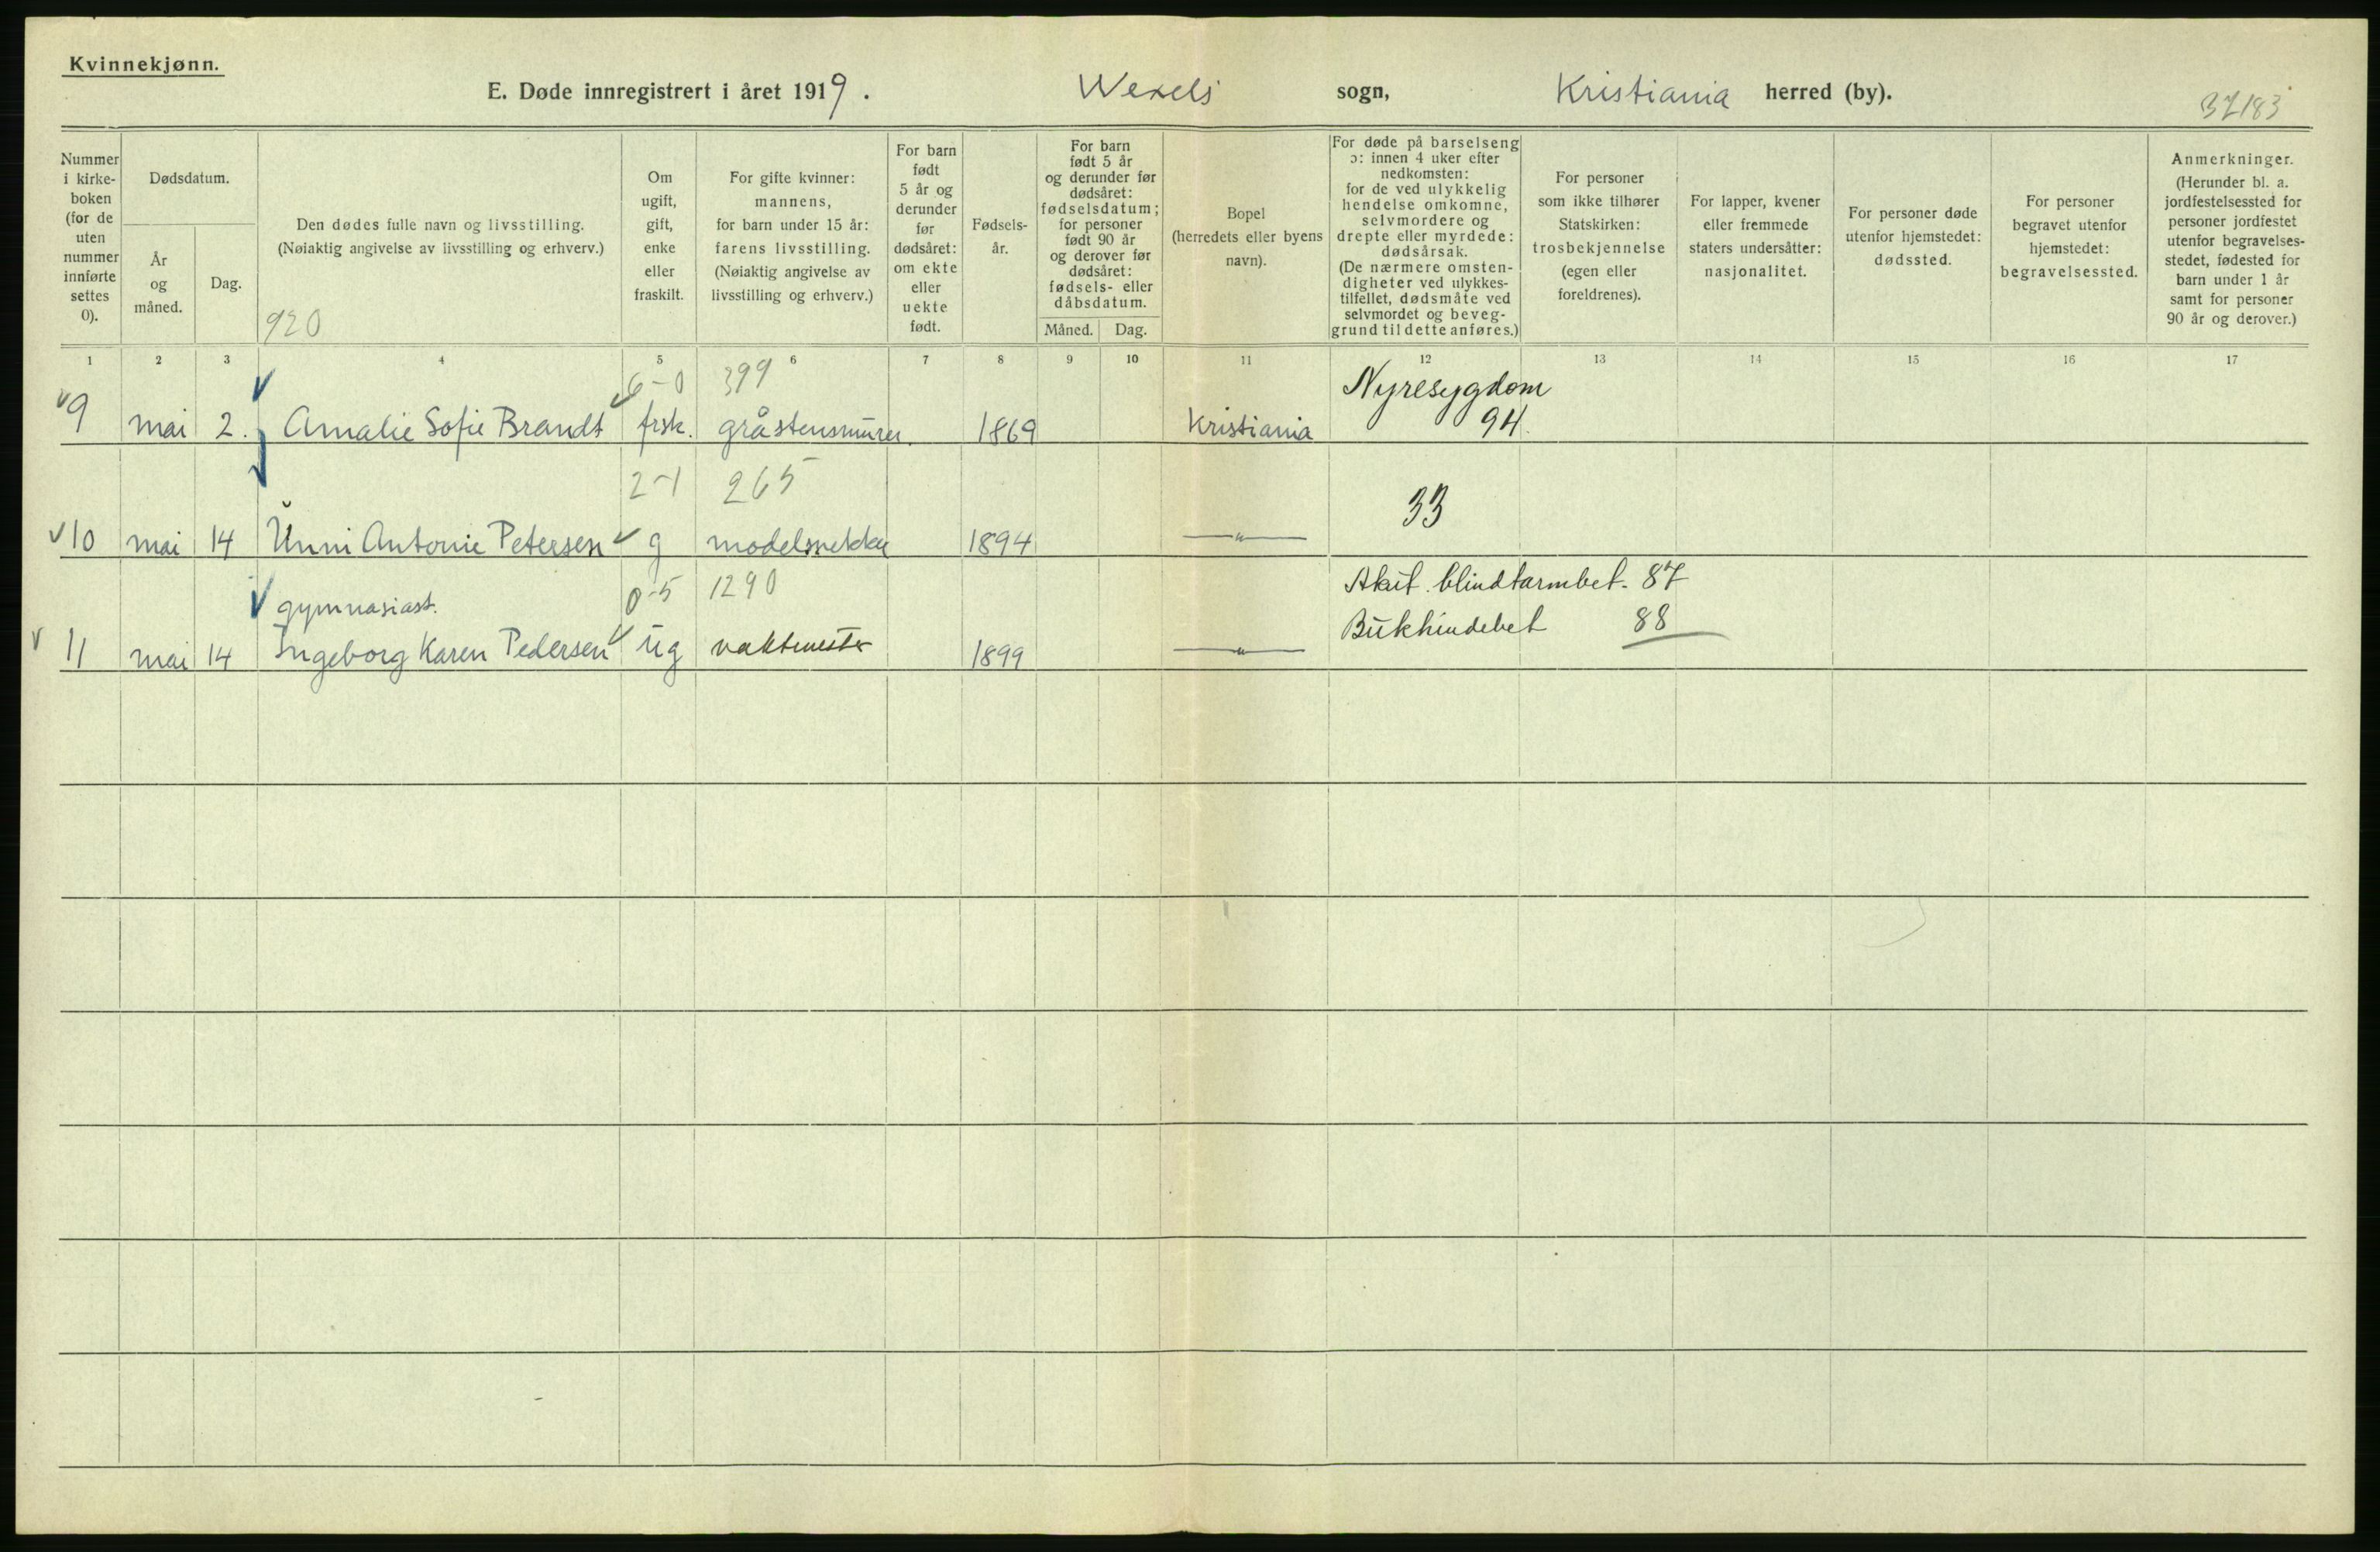 Kvinnekjønn.
E. Døde innregistrert i året 1919. Wexels sogn, Kristiania herred (by).
37183
Nummer i kirke- boken (for de uten nummer innførte settes 0).
Dødsdatum.
År og måned.
Dag.
Den dødes fulle navn og livsstilling.
(Nøiaktig angivelse av livsstilling og erhverv.)
920
Om ugift, gift, enke eller fraskilt.
For gifte kvinner: mannens, for barn under 15 år: farens livsstilling. (Nøiaktig angivelse av livsstilling og erhverv.)
For barn født 5 år og derunder før dødsåret: om ekte eller uekte født.
Fødsels- år.
For barn født 5 år og derunder før dødsåret: fødselsdatum; for personer født 90 år og derover før dødsåret: fødsels- eller dåbsdatum.
Måned. Dag.
Bopel (herredets eller byens navn).
For døde på barselseng ɔ: innen 4 uker efter nedkomsten: for de ved ulykkelig hendelse omkomne, selvmordere og drepte eller myrdede: dødsårsak. (De nærmere omsten- digheter ved ulykkes- tilfellet, dødsmåte ved selvmordet og beveg- grund til dette anføres.)
For personer som ikke tilhører Statskirken: trosbekjennelse (egen eller foreldrenes).
For lapper, kvener eller fremmede staters undersåtter: nasjonalitet.
For personer døde utenfor hjemstedet: dødssted.
For personer begravet utenfor hjemstedet: begravelsessted.
Anmerkninger. (Herunder bl. a. jordfestelsessted for personer jordfestet utenfor begravelses- stedet, fødested for barn under 1 år samt for personer 90 år og derover.)
1 2 3 4 5 6 7 8 9 10 11 12 13 14 15 16 17
6-0 399 Nyresygdom
9 mai 2. Amalie Sofie Brandt frsk. gråstensmurer. 1869 Kristiania 94.
2-1 265 33
10 mai 14 Unni Antonie Petersen g modelsnekker 1894 —"—
gymnasiast. 0-5 1290 Akut. blindtarmbet. 87
Bukhindebet 88
11 mai 14 Ingeborg Karen Pedersen ug vaktmester 1899 —"—